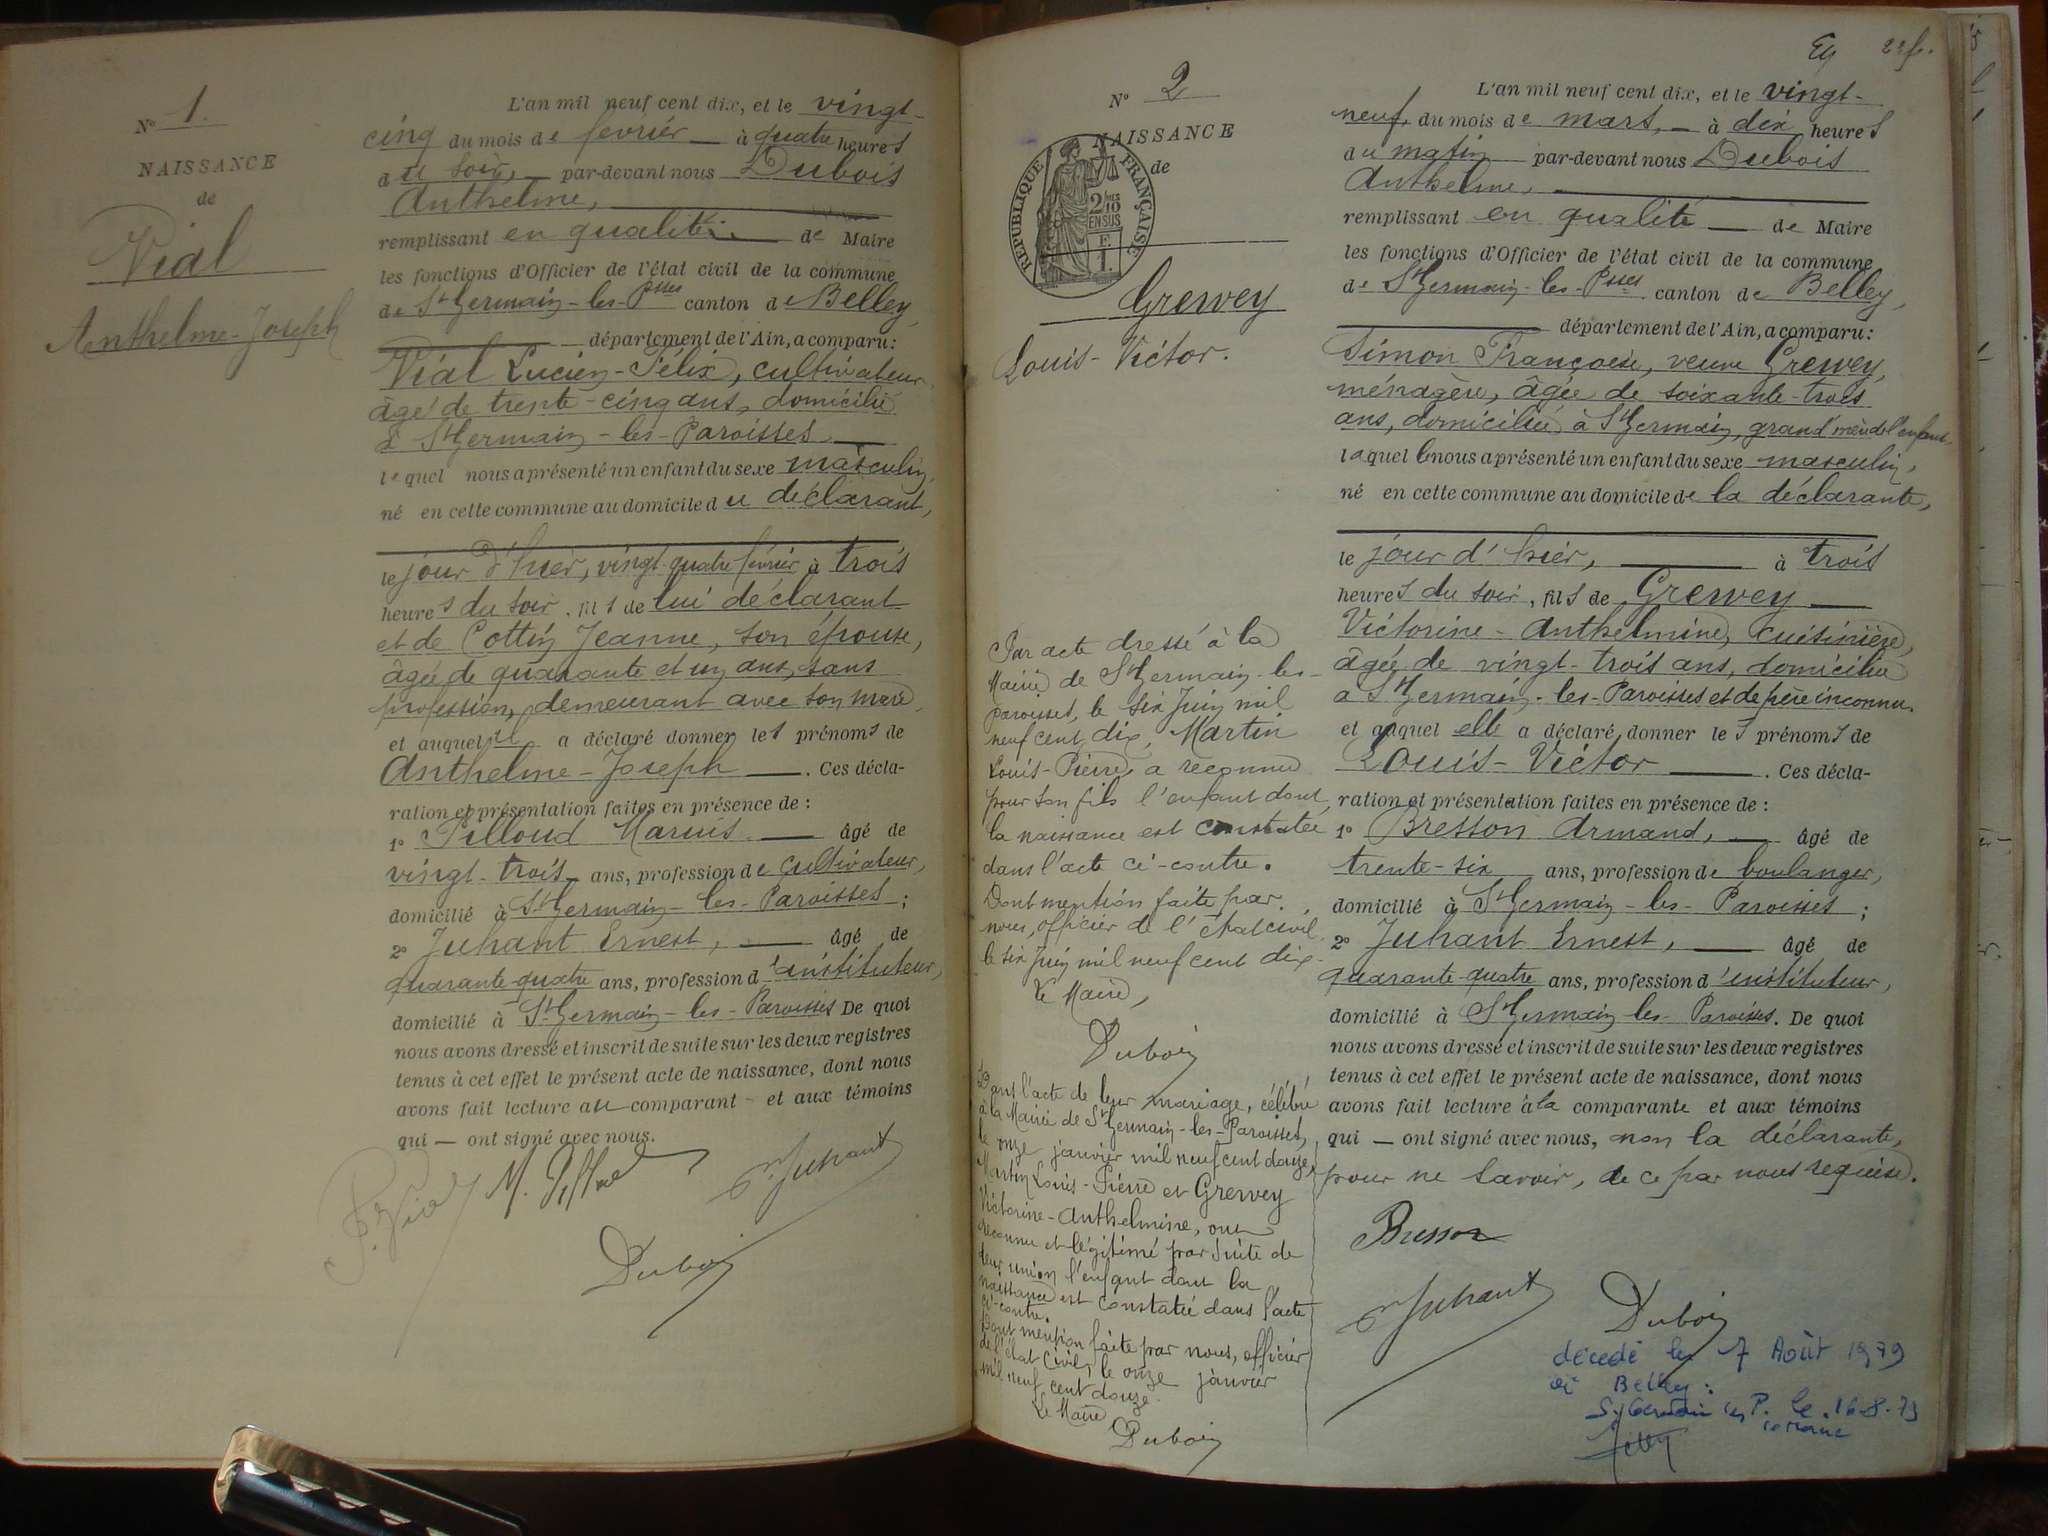 N° 1.
NAISSANCE
de
Vial
Anthelme-Joseph
L'an mil neuf cent dix, et le vingt-
cinq du mois de février — à quatre heures
du soir, — par-devant nous Dubois
Anthelme,
remplissant en qualité — de Maire
les fonctions d'Officier de l'état civil de la commune
de St Germain-les-Psses canton de Belley,
département de l'Ain, a comparu:
Vial Lucien-Félix, cultivateur,
âgé de trente-cinq ans, domicilié
à St Germain-les-Paroisses —
lequel nous a présenté un enfant du sexe masculin,
né en cette commune au domicile du déclarant,
le jour d'hier, vingt-quatre février à trois
heures du soir, fils de lui déclarant
et de Cottin Jeanne, son épouse,
âgée de quarante et un ans, sans
profession, demeurant avec son mari,
et auquel il a déclaré donner les prénoms de
Anthelme-Joseph —. Ces décla-
ration et présentation faites en présence de :
1° Pilloud Marius — âgé de
vingt-trois ans, profession de cultivateur,
domicilié à St Germain-les-Paroisses ;
2° Juhant Ernest, — âgé de
quarante-quatre ans, profession d'instituteur,
domicilié à St Germain-les-Paroisses De quoi
nous avons dressé et inscrit de suite sur les deux registres
tenus à cet effet le présent acte de naissance, dont nous
avons fait lecture au comparant — et aux témoins
qui — ont signé avec nous.
F. Vial M. Pilloud Juhant
Dubois
N° 2
NAISSANCE
de
REPUBLIQUE FRANÇAISE
2/10
EN SUS
1 F.
Grewey
Louis-Victor.
Par acte dressé à la
Mairie de St Germain-les-
Paroisses, le six Juin mil
neuf cent dix, Martin
Louis-Pierre, a reconnu
pour son fils l'enfant dont
la naissance est constatée
dans l'acte ci-contre.
Dont mention faite par
nous, officier de l'état civil
le six Juin mil neuf cent dix.
Le Maire,
Dubois
Dans l'acte de leur mariage, célébré
à la Mairie de St Germain-les-Paroisses,
le onze janvier mil neuf cent douze,
Martin Louis-Pierre et Grewey
Victorine-Anthelmine, ont
reconnu et légitimé par suite de
leur union l'enfant dont la
naissance est constatée dans l'acte
ci-contre.
Dont mention faite par nous, officier
de l'état civil, le onze janvier
mil neuf cent douze.
Le Maire
Dubois
L'an mil neuf cent dix, et le vingt-
neuf, du mois de mars, — à dix heures
du matin — par-devant nous Dubois
Anthelme,
remplissant en qualité — de Maire
les fonctions d'Officier de l'état civil de la commune
de St Germain-les-Psses canton de Belley,
département de l'Ain, a comparu :
Simon Françoise, veuve Grewey,
ménagère, âgée de soixante-trois
ans, domiciliée à St Germain, grand'mère de l'enfant
laquelle nous a présenté un enfant du sexe masculin,
né en cette commune au domicile de la déclarante,
le jour d'hier, — à trois
heures du soir, fils de Grewey —
Victorine-Anthelmine, cuisinière,
âgée de vingt-trois ans, domiciliée
à St Germain-les-Paroisses et de père inconnu.
et auquel elle a déclaré donner les prénoms de
Louis-Victor —. Ces décla-
ration et présentation faites en présence de :
1° Bresson Armand, — âgé de
trente-six ans, profession de boulanger,
domicilié à St Germain-les-Paroisses ;
2° Juhant Ernest, — âgé de
quarante-quatre ans, profession d'instituteur,
domicilié à St Germain-les-Paroisses. De quoi
nous avons dressé et inscrit de suite sur les deux registres
tenus à cet effet le présent acte de naissance, dont nous
avons fait lecture à la comparante et aux témoins
qui — ont signé avec nous, non la déclarante,
pour ne savoir, de ce par nous requise.
Bresson
Juhant Dubois
décédé le 7 Août 1979
à Belley.
St Germain les P. le 16-8-79
le Maire